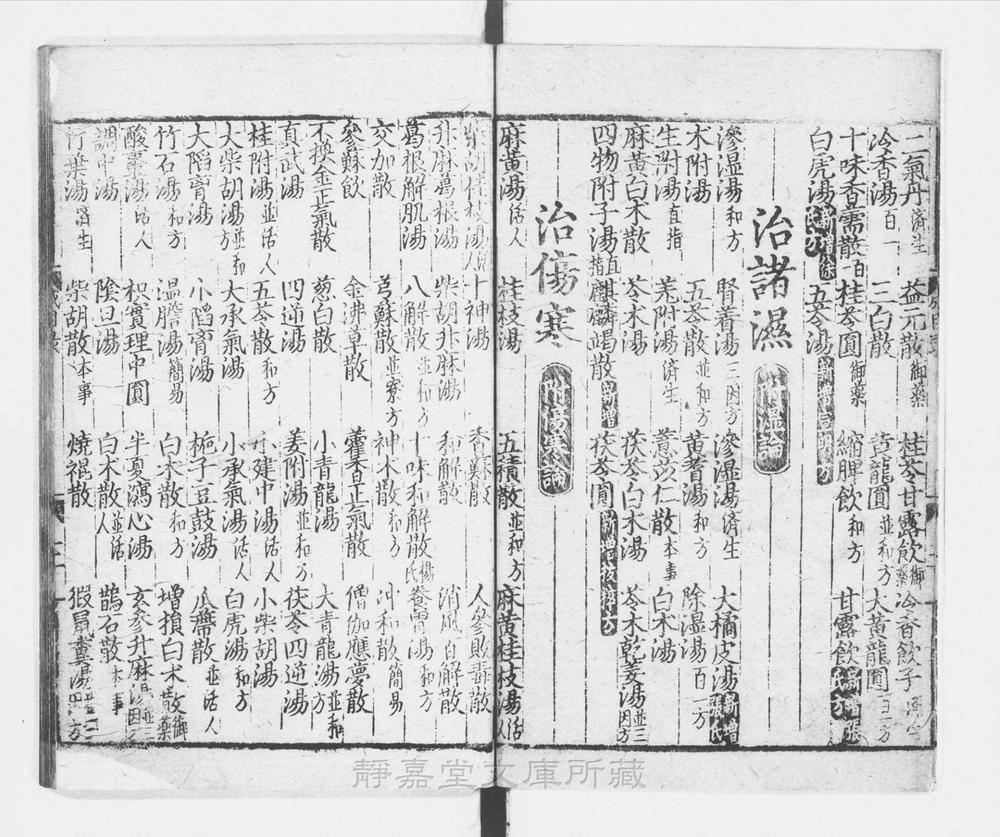 二氣丹濟生 益元散御藥 桂苓甘露飲御藥 冷香飲子
冷香湯百一 三白散 黃龍圓並和方 大黃龍圓百一方
十味香薷散百一 桂苓圓御藥 縮脾飲和方 甘露飲新增張氏方
白虎湯新增徐氏方 五苓湯新增
治諸濕 附濕論
滲湿湯和方 腎着湯三因方 滲湿湯濟生 大橘皮湯新增
朮附湯 五苓散並和方 黃耆湯和方 除湿湯百一方
生附湯直指 羌附湯濟生 薏苡仁散本事 白朮湯
麻黃白朮散 苓朮湯 茯苓白朮湯 苓朮乾姜湯並三因方
四物附子湯直指 麒麟竭散新增 茯苓圓新增
治傷寒 附傷寒論
麻黃湯活人 桂枝湯 五積散並和方 麻黃桂枝湯活人
柴胡桂枝湯活人 十神湯 香蘇散 人參敗毒散
升麻葛根湯 柴胡升麻湯 和解散 消風百解散
葛根解肌湯 八解散並和方 十味和解散楊氏 養胃湯和方
交加散 芎蘇散並寮方 神朮散和方 沖和散簡易
參蘇飲 金沸草散 藿香正氣散 僧伽應夢散
不換金正氣散 葱白散 小青龍湯 大青龍湯並和方
真武湯 四逆湯 姜附湯並和方 茯苓四逆湯
桂附湯並活人 五苓散和方 小建中湯活人 小柴胡湯
大柴胡湯並和方 大承氣湯 小承氣湯活人 白虎湯和方
大陷胷湯 小陷胷湯 梔子豆豉湯 瓜蔕散並活人
竹石湯和方 温膽湯簡易 白朮散和方 增損白朮散御藥
酸棗湯活人 枳實理中圓 半夏瀉心湯 玄參升麻湯並三因
調中湯 陰旦湯 白朮散並活人 鵲石散本事
竹葉湯濟生 柴胡散本事 燒裩散 猳鼠糞湯
靜嘉堂文庫所藏